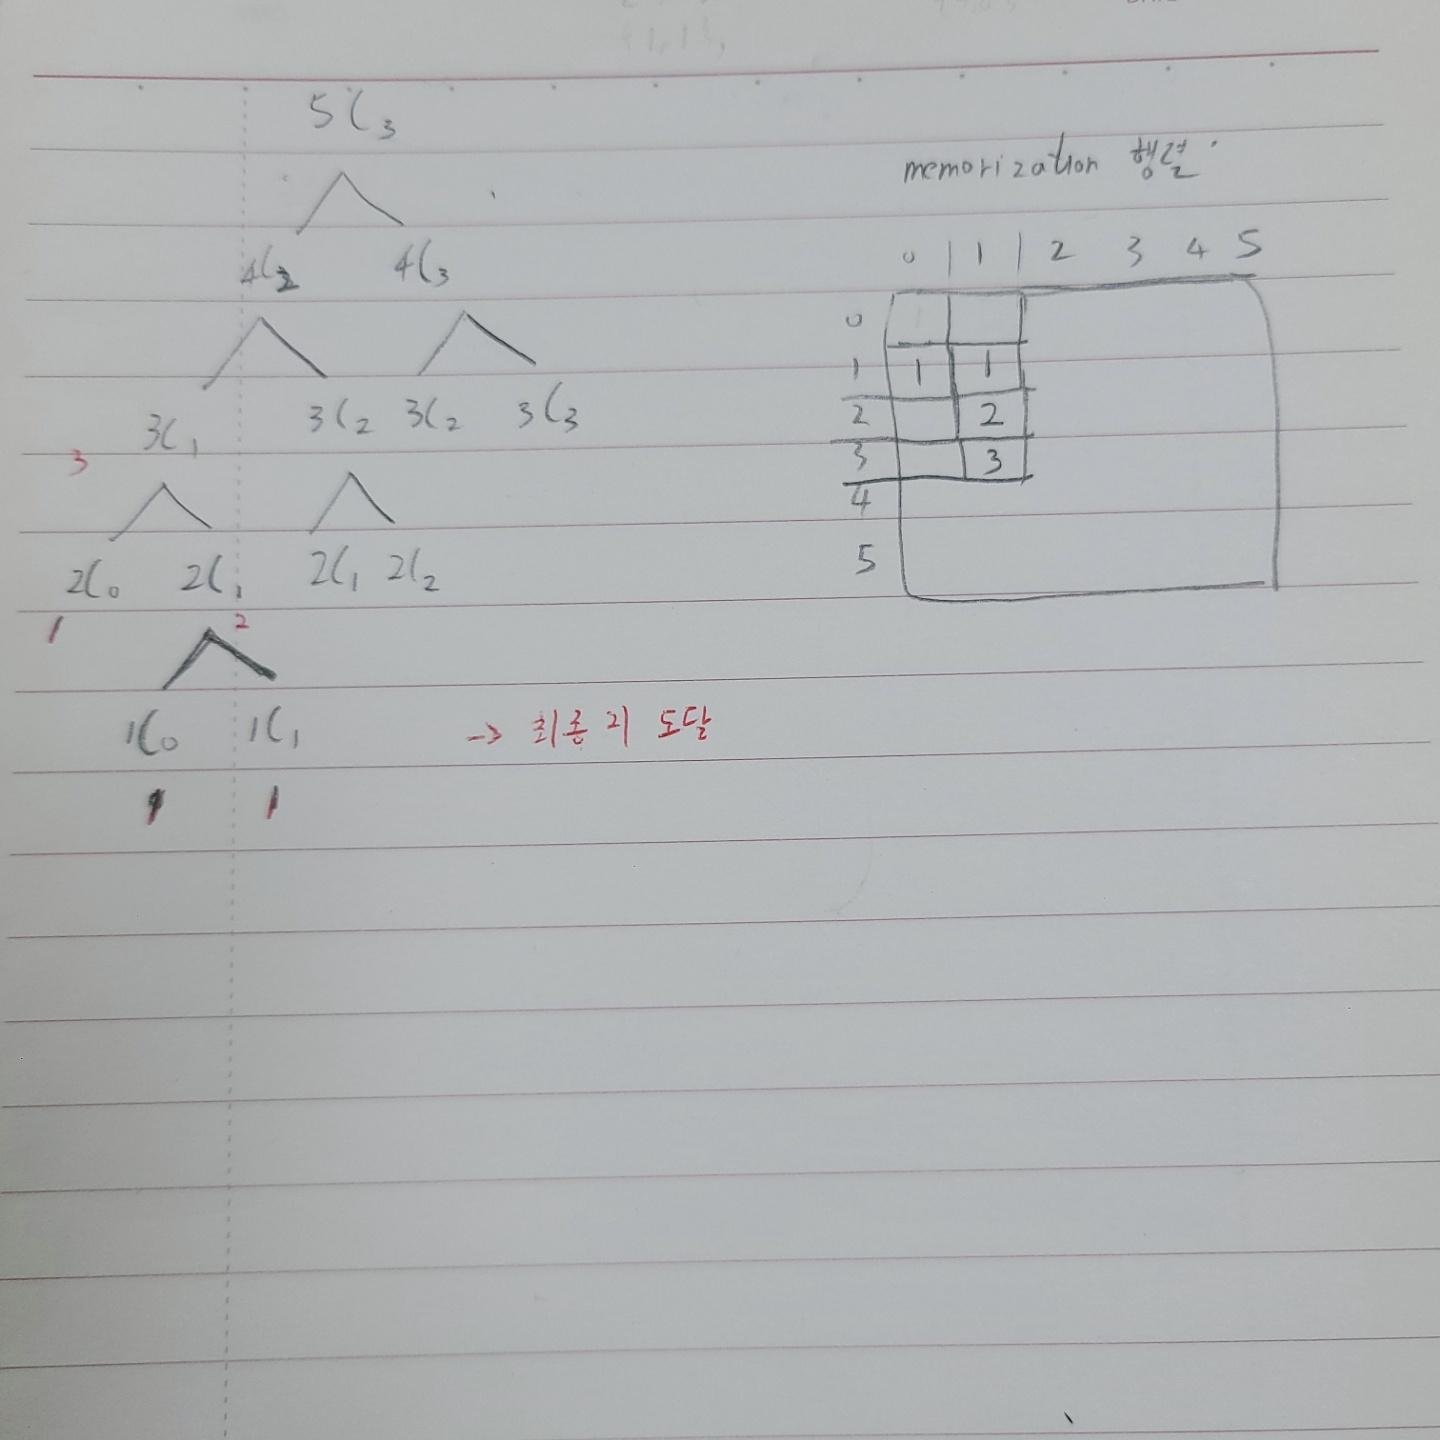 5C3
4C2 4C3
3C1 3C2 3C2 3C3
3
2C0 2C1 2C1 2C2
1 2
1C0 1C1 -> 최종 리 도달
1 1
memorization 행렬
0 1 2 3 4 5
0
1 1 1
2 2
3 3
4
5